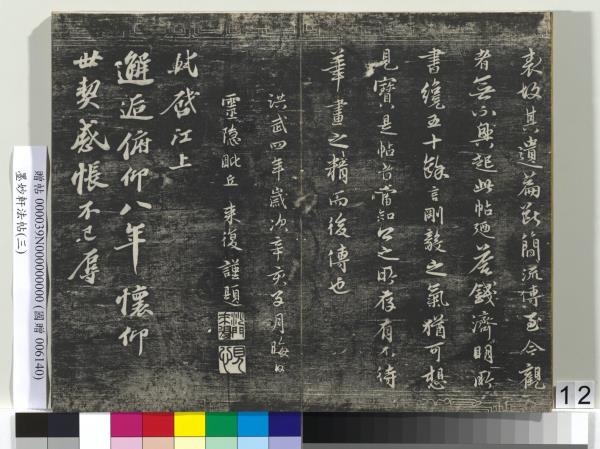 表故其遺篇斷簡流傳至今觀
者無不興起此帖廼答錢濟明所
書纔五十餘言剛毅之氣猶可想
見寶是帖者當知公之所存有不待
華畫之精而後傳也
洪武四年歲次辛亥five月晦日
靈隱比丘 來復謹題
軾啓江上
邂逅俯仰八年懷仰
世契感悵不已辱
贈帖 000039N000000000 (國贈 006140)
墨妙軒法帖(三)
12